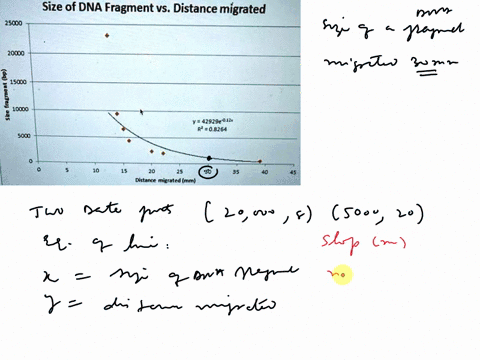 Size of DNA Fragment vs. Distance migrated
25000
20000
15000
10000
5000
0
Size fragment (bp)
y = 42929e
R² = 0.8264
0 5 10 15 20 25 35 40 45
Distance migrated (mm)
DNA
size of a fragment
migrated 30 mm
Two Data points (20,000, 8) (5000, 20)
Eq. of line: Slop (m)
x = size of DNA fragment
y = distance migrated